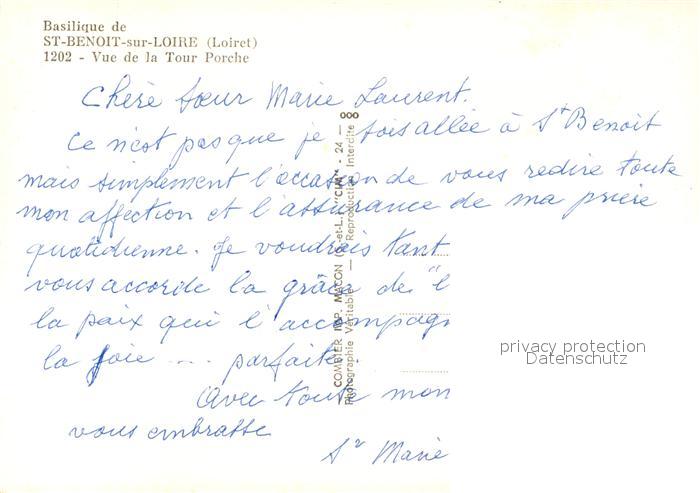 Basilique de
ST-BENOIT-sur-LOIRE (Loiret)
1202 - Vue de la Tour Porche
Chère Sœur Marie Laurent.
Ce n'est pas que je sois allée à St Benoit
mais simplement l'occasion de vous redire toute
mon affection et l'assurance de ma prière
quotidienne. Je voudrais tant
vous accorde la grâce de "l
la paix qui l'accompagn
la joie ... parfaite
Avec toute mon
vous embrasse
Sr Marie
COMBIER IMP. MACON (S.-et-L.) "CIM" - 24 -
Photographie Véritable - Reproduction Interdite
privacy protection
Datenschutz